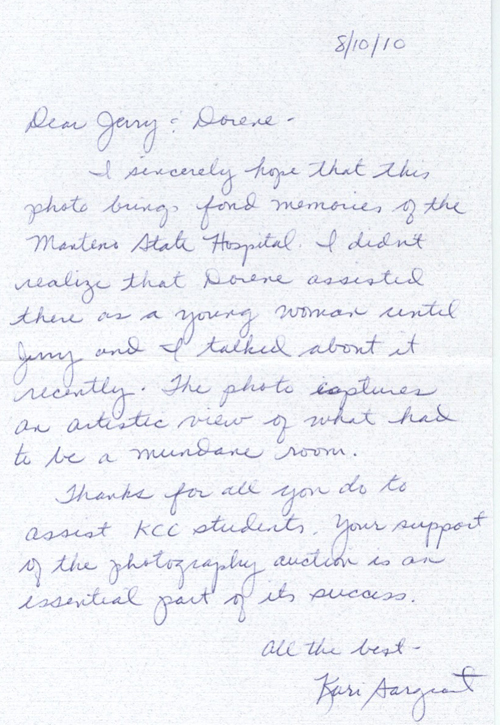 8/10/10
Dear Jerry & Dorene -
I sincerely hope that this
photo brings fond memories of the
Manteno State Hospital. I didn't
realize that Dorene assisted
there as a young woman until
Jerry and I talked about it
recently. The photo captures
an artistic view of what had
to be a mundane room.
Thanks for all you do to
assist KCC students. Your support
of the photography auction is an
essential part of its success.
All the best -
Kari Sargeant